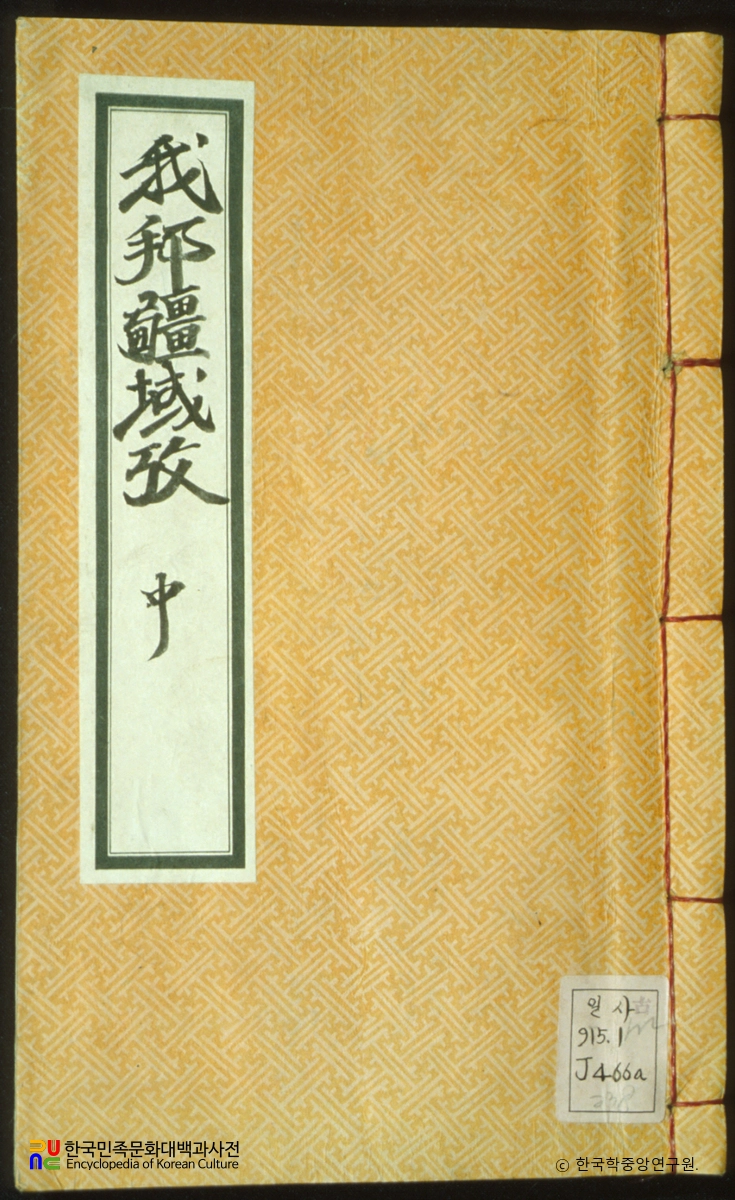 我邦疆域攷
中
일사
古
915.1
J466a
한국민족문화대백과사전
Encyclopedia of Korean Culture
© 한국학중앙연구원.